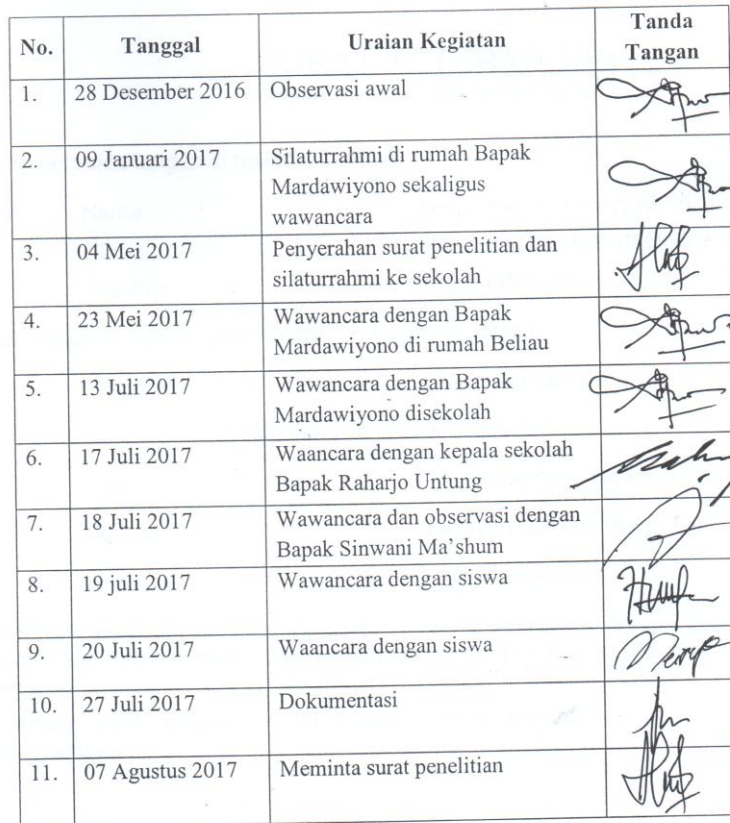 No. Tanggal Uraian Kegiatan Tanda
Tangan
1. 28 Desember 2016 Observasi awal
2. 09 Januari 2017 Silaturrahmi di rumah Bapak
Mardawiyono sekaligus
wawancara
3. 04 Mei 2017 Penyerahan surat penelitian dan
silaturrahmi ke sekolah
4. 23 Mei 2017 Wawancara dengan Bapak
Mardawiyono di rumah Beliau
5. 13 Juli 2017 Wawancara dengan Bapak
Mardawiyono disekolah
6. 17 Juli 2017 Waancara dengan kepala sekolah
Bapak Raharjo Untung
7. 18 Juli 2017 Wawancara dan observasi dengan
Bapak Sinwani Ma'shum
8. 19 juli 2017 Wawancara dengan siswa
9. 20 Juli 2017 Waancara dengan siswa
10. 27 Juli 2017 Dokumentasi
11. 07 Agustus 2017 Meminta surat penelitian